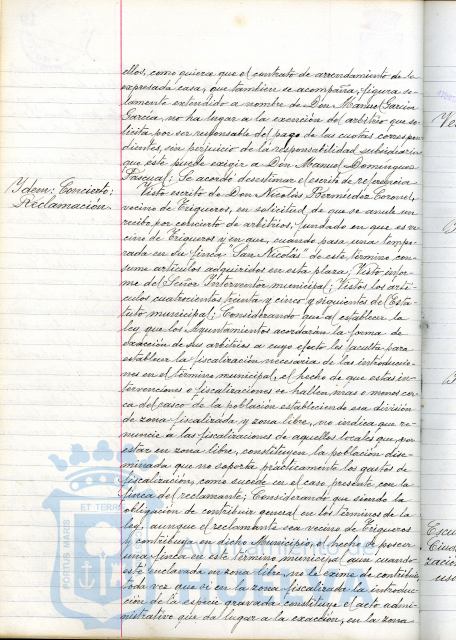 ellos, como quiera que el contrato de arrendamiento de la
expresada casa, que tambien se acompaña, figura so-
lamente extendido a nombre de Don Manuel García
García, no ha lugar a la exención del arbitrio que so-
licita por ser responsable del pago de las cuotas correspon-
dientes, sin perjuicio de la responsabilidad subsidiaria
que este puede exigir a Don Manuel Dominguez
Pascual; Se acordó desestimar el escrito de referencia
Idem: Concierto:
Reclamación.
Visto escrito de Don Nicolás Bermúdez Coronel,
vecino de Trigueros, en solicitud de que se anule un
recibo por concierto de arbitrios, fundado en que es ve-
cino de Trigueros y en que, cuando pasa una tempo-
rada en su finca "San Nicolás" de este termino con-
sume artículos adquiridos en esta plaza; Visto infor-
me del Señor Interventor municipal; Vistos los artí-
culos cuatrocientos treinta y cinco y siguientes del Esta-
tuto municipal; Considerando que al establecer la
ley que los Ayuntamientos acordarán la forma de
exacción de sus arbitrios a cuyo efecto les faculta para
establecer la fiscalización necesaria de las introduccio-
nes en el término municipal, el hecho de que estas in-
tervenciones o fiscalizaciones se hallen mas o menos cer-
ca del casco de la población estableciendo esa división
de zona fiscalizada y zona libre, no indica que re-
nuncie a las fiscalizaciones de aquellos locales que por
estar en zona libre, constituyen la población dise-
minada que no soporta prácticamente los gastos de
fiscalización, como sucede en el caso presente con la
finca del reclamante; Considerando que siendo la
obligación de contribuir general en los terminos de la
ley, aunque el reclamante sea vecino de Trigueros
y contribuya en dicho Municipio, el hecho de poseer
una finca en este término municipal aun cuando
esté enclavada en zona libre, no le exime de contribuir,
toda vez que si en la zona fiscalizada la introduc-
ción de la especie gravada constituye el acto admi-
nistrativo que da lugar a la exacción, en la zona
PORTUS MARIS
ET TERR
Escu